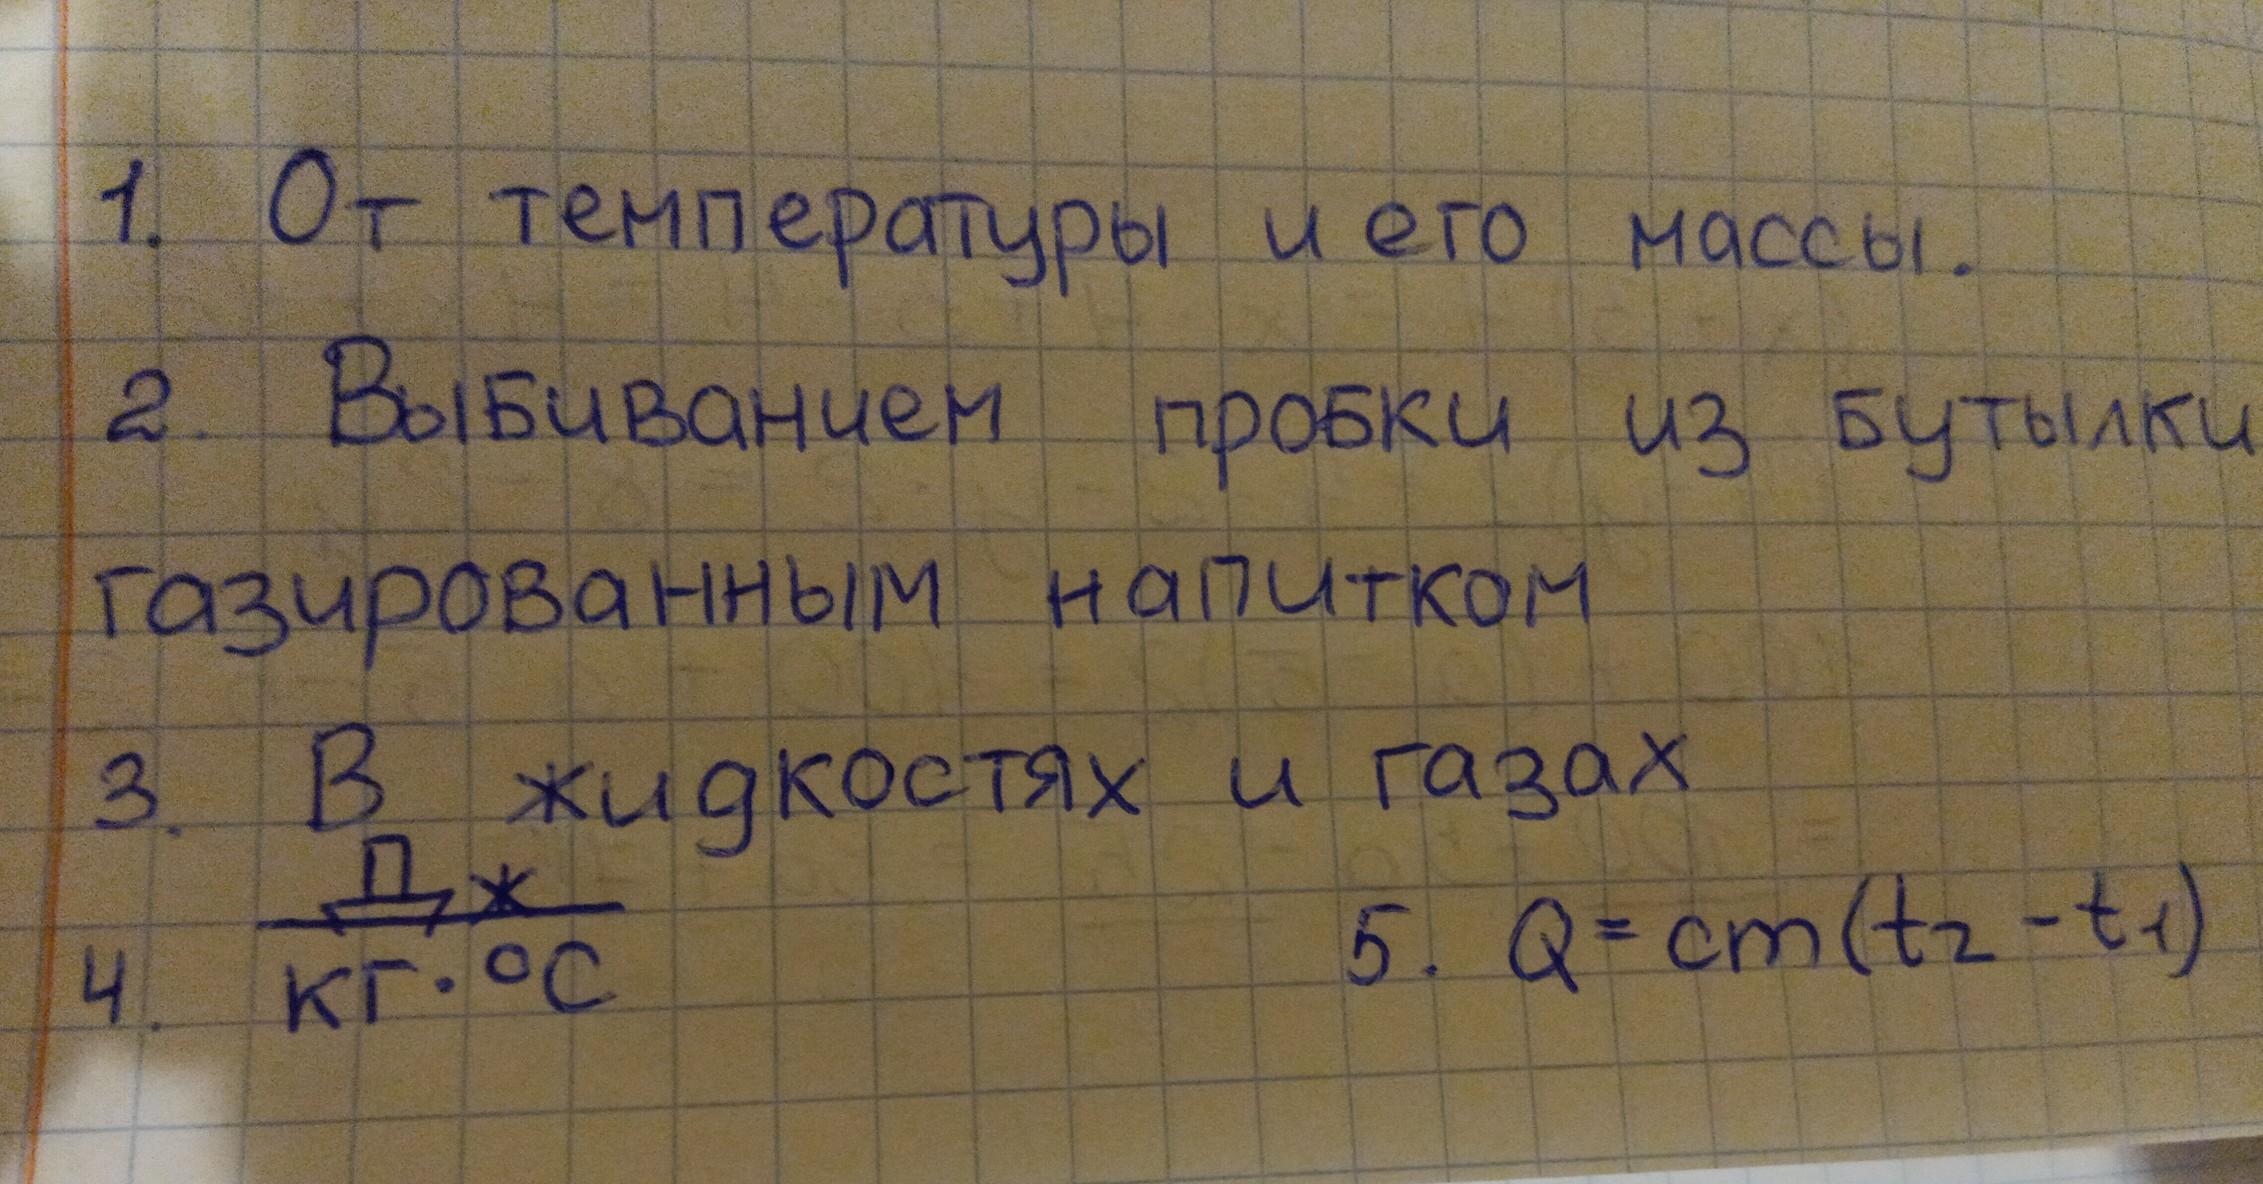 1. От температуры и его массы.
2. Выбиванием пробки из бутылки
газированным напитком
3. В жидкостях и газах
4. Дж
кг·°С
5. Q=cm(t2-t1)